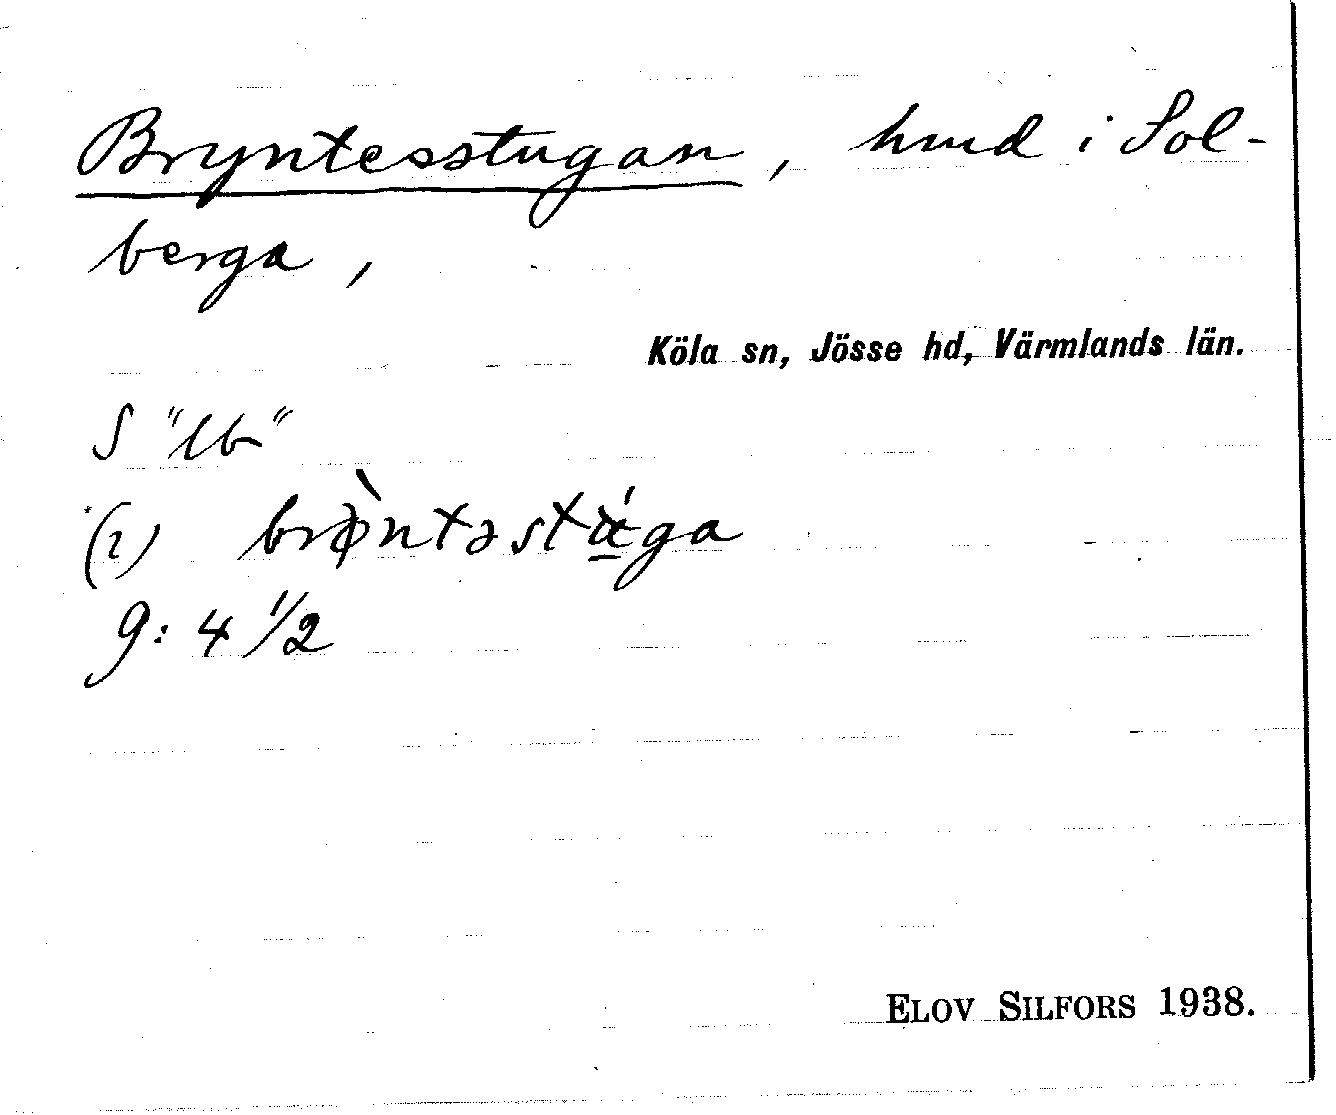 Bryntesstugan, hmd i Sol-
berga,
Köla sn, Jösse hd, Värmlands län.
S "lb"
(2) brø̀ntəstá̱ga
9: 4 1/2
ELOV SILFORS 1938.